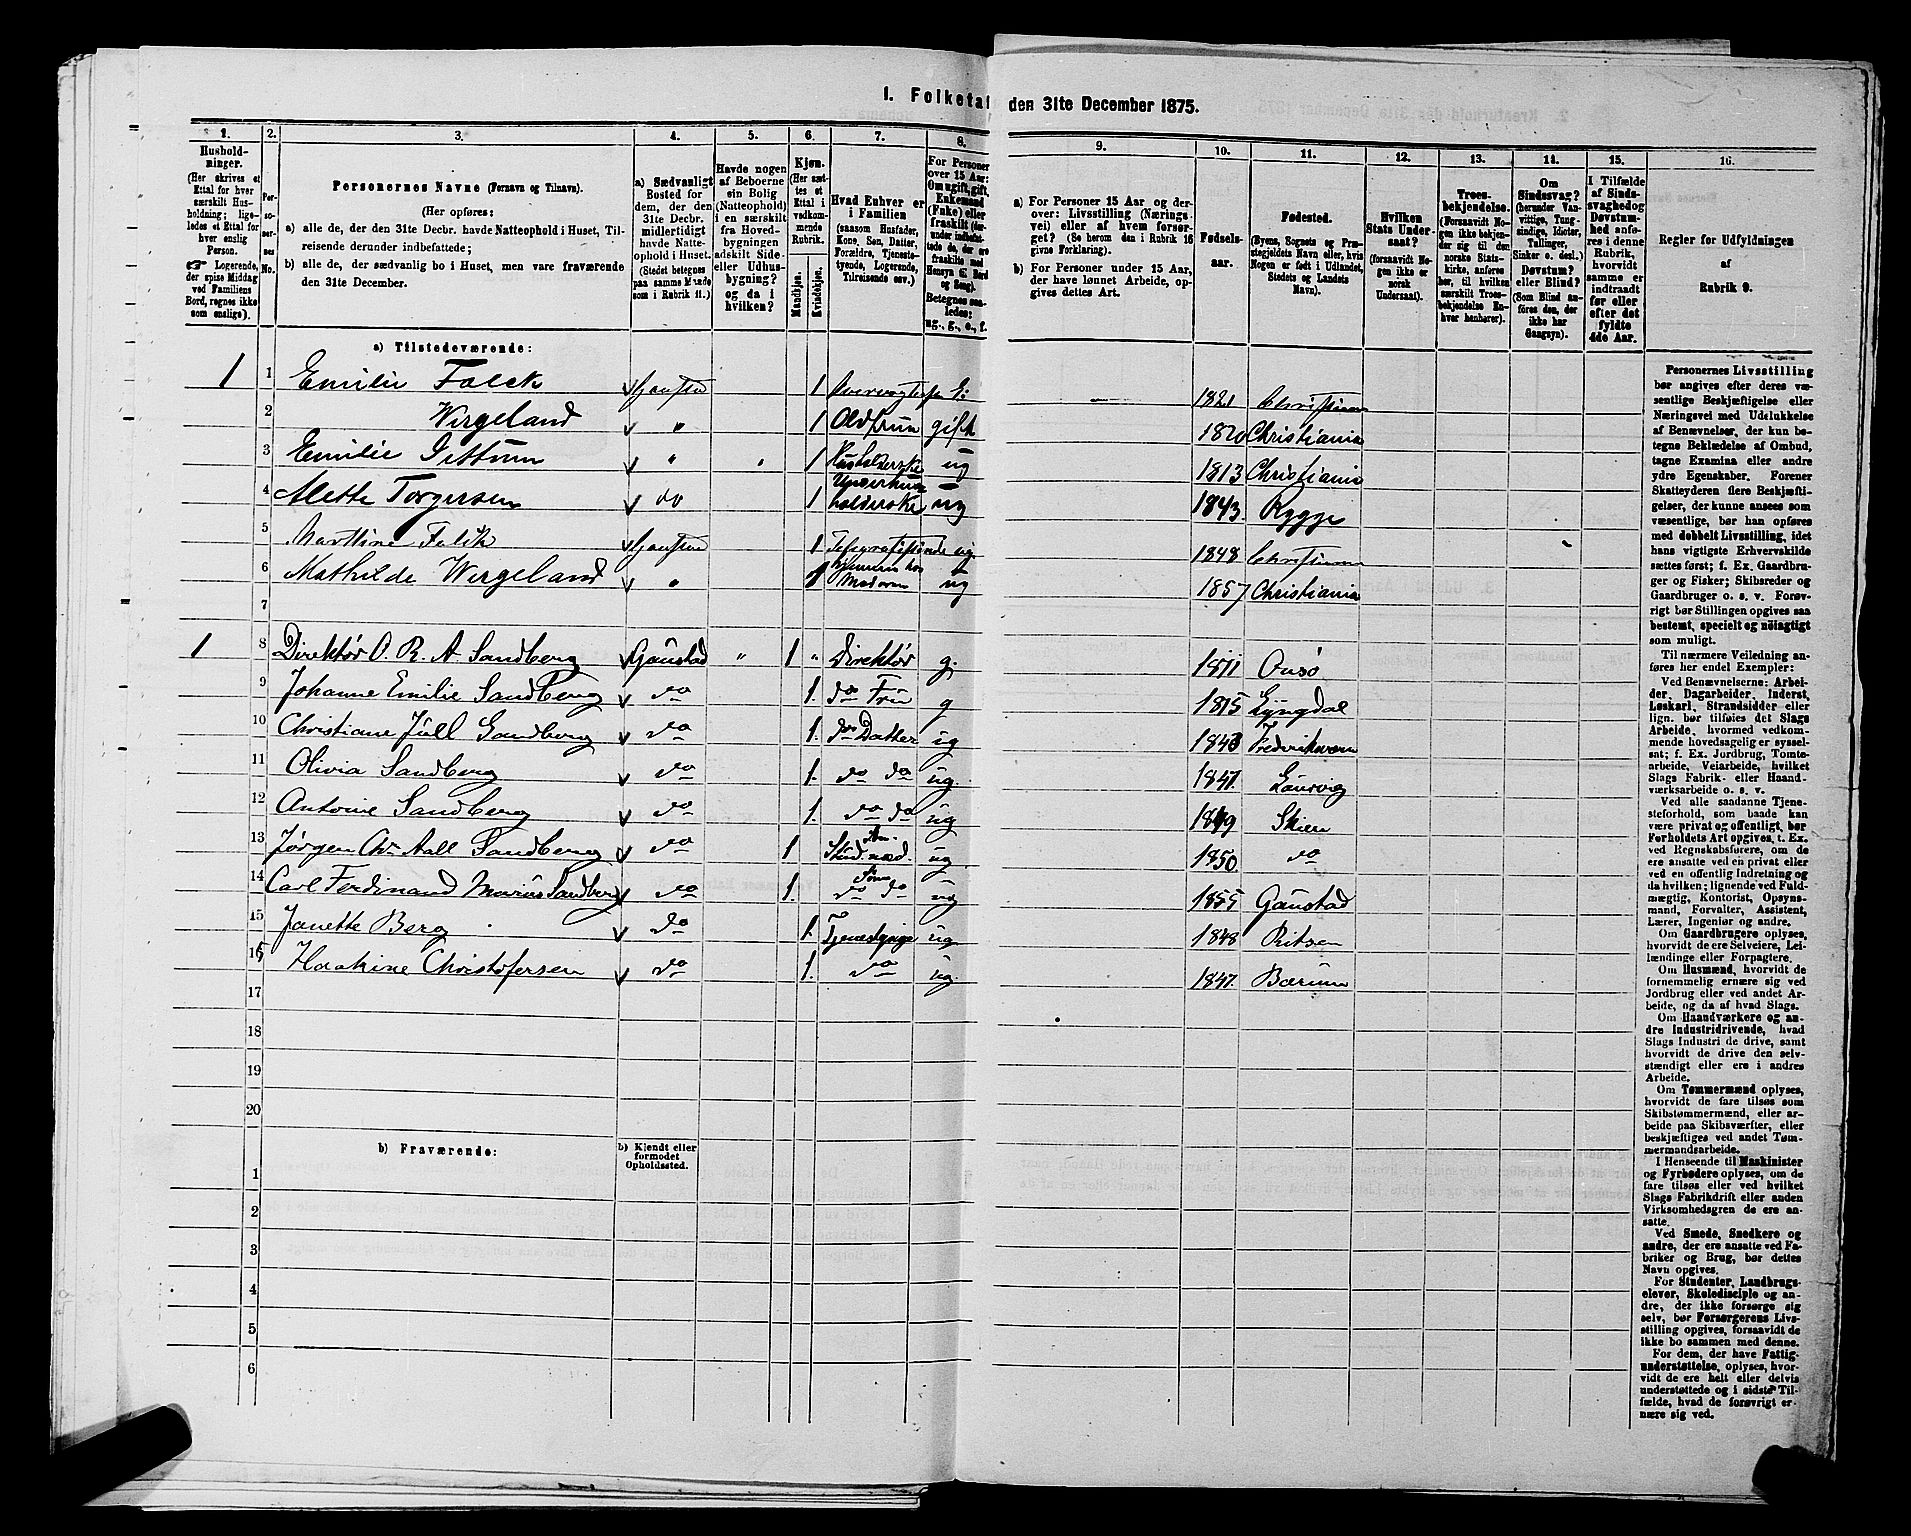 1. Folketal den 31te December 1875.
1. 2. 3. 4. 5. 6. 7. 8. 9. 10. 11. 12. 13. 14. 15. 16.
Hushold-
ninger.
(Her skrives et
Ettal for hver
særskilt Hus-
holdning; lige-
ledes et Ettal for
hver enslig
Person.
☞ Logerende,
der spise Middag
ved Familiens
Bord, regnes ikke
som enslige).
Per-
so-
ner-
nes
No.
Personernes Navne (Fornavn og Tilnavn).
(Her opføres:
a) alle de, der den 31te Decbr. havde Natteophold i Huset, Til-
reisende derunder indbefattede;
b) alle de, der sædvanlig bo i Huset, men vare fraværende
den 31te December.
a) Sædvanligt
Bosted for
dem, der den
31te Decbr.
midlertidigt
havde Natte-
ophold i Huset.
(Stedet betegnes
paa samme Maade
som i Rubrik 11.)
Havde nogen
af Beboerne
sin Bolig
(Natteophold)
i en særskilt
fra Hoved-
bygningen
adskilt Side-
eller Udhus-
bygning?
og da i
hvilken?
Kjøn.
(Her sæt-
tes et
Ettal i
vedkom-
mende
Rubrik.
Mandkjøn.
Kvindekjøn.
Hvad Enhver er
i Familien
(saasom Husfader,
Kone, Søn, Datter,
Forældre, Tjeneste-
tyende, Logerende,
Tilreisende osv.)
For Personer
over 15 Aar:
Om ugift, gift,
Enkemand
(Enke) eller
fraskilt
Betegnes saa-
ledes:
ug., g., e., f.
a) For Personer 15 Aar og der-
over: Livsstilling (Nærings-
vei) eller af hvem forsør-
get? (Se herom den i Rubrik 16
givne Forklaring).
b) For Personer under 15 Aar,
der have lønnet Arbeide, op-
gives dettes Art.
Fødsels-
aar.
Fødested.
(Byens, Sognets og Præ-
stegjeldets Navn eller, hvis
Nogen er født i Udlandet,
Stedets og Landets
Navn).
Hvilken
Stats Under-
saat?
(forsaavidt No-
gen ikke er
norsk
Undersaat).
Troes-
bekjendelse.
(Forsaavidt No-
gen ikke bekjen-
der sig til den
norske Stats-
kirke, anføres
her, til hvilken
særskilt Troes-
bekjendelse En-
hver henhører).
Om
Sindssvag?
(herunder Van-
vittige, Tung-
sindige, Idioter,
Tullinger,
Sinker o. desl.)
Døvstum?
eller Blind?
(Som Blind an-
føres den, der
ikke har
Gangsyn).
I Tilfælde
af Sinds-
svaghed og
Døvstum-
hed anfø-
res i denne
Rubrik,
hvorvidt
samme er
indtraadt
før eller
efter det
fyldte
4de Aar.
Regler for Udfyldningen
af
Rubrik 9.
a) Tilstedeværende:
1 1 Emilie Falck 1 1821 Christiania
2 Wirgeland " 1 Oldfrue gift 1820 Christiania
3 Emilie " " 1 Husholderske ug 1813 Christiania
4 Alette Torgersen do 1 Underhus-
holderske ug 1843 Rygge
5 Marthine Falck 1 ug. 1848 Christiania
6 Mathilde Wirgeland " 1 hjemme hos
Moderen ug 1857 Christiania
7
1 8 Direktør O. R. A. Sandberg Gaustad " 1 " Direktør g. 1811 Onsø
9 Johanne Emilie Sandberg do 1. do Frue g 1815 Lyngdal
10 Christiane Juell Sandberg do 1. do Datter ug Fredriksværn
11 Olivia Sandberg do 1. do do ug. 1847. Laurvig
12 Antonie Sandberg do 1. do do ug 1849 Skien
13 Jørgen Chr Aall Sandberg do 1 Søn
Stud. med. ug 1850. do
14 Carl Ferdinand Marius Sandberg do 1. Søn
do do ug 1855 Gaustad
15 Janette Berg do 1. Tjenestpige ug. 1848
16 Haakine Christofersen do 1. do ug. 1847. Bærum
17
18
19
20
b) Fraværende: b) Kjendt eller
formodet
Opholdssted.
1
2
3
4
5
6
Personernes Livsstilling
bør angives efter deres væ-
sentlige Beskjæftigelse eller
Næringsvei med Udelukkelse
af Benævnelser, der kun be-
tegne Beklædelse af Ombud,
tagne Examina eller andre
ydre Egenskaber. Forener
Skatteyderen flere Beskjæfti-
gelser, der kunne ansees som
væsentlige, bør han opføres
med dobbelt Livsstilling, idet
hans vigtigste Erhvervskilde
sættes først; f. Ex. Gaardbru-
ger og Fisker; Skibsreder og
Gaardbruger o. s. v. Forøv-
rigt bør Stillingen opgives saa
bestemt, specielt og nøiagtigt
som muligt.
Til nærmere Veiledning an-
føres her endel Exempler:
Ved Benævnelserne: Arbei-
der, Dagarbeider, Inderst,
Løskarl, Strandsidder eller
lign. bør tilføies det Slags
Arbeide, hvormed vedkom-
mende hovedsagelig er syssel-
sat; f. Ex. Jordbrug, Tomte-
arbeide, Veiarbeide, hvilket
Slags Fabrik- eller Haand-
værksarbeide o. s. v.
Ved alle saadanne Tjene-
steforhold, som baade kan
være privat og offentligt, bør
Forholdets Art opgives, t. Ex.
ved Regnskabsførere, om de
ere ansatte ved en privat eller
ved en offentlig Indretning og
da hvilken; lignende ved Fuld-
mægtig, Kontorist, Opsyns-
mand, Forvalter, Assistent,
Lærer, Ingeniør og andre.
Om Gaardbrugere oplyses,
hvorvidt de ere Selveiere, Lei-
lændinge eller Forpagtere.
Om Husmænd, hvorvidt de
fornemmelig ernære sig ved
Jordbrug eller ved andet Ar-
beide, og da af hvad Slags.
Om Haandværkere og an-
dre Industridrivende, hvad
Slags Industri de drive, samt
hvorvidt de drive den selv-
stændigt eller ere i andres
Arbeide.
Om Tømmermænd oplyses,
hvorvidt de fare tilsøs som
Skibstømmermænd, eller ar-
beide paa Skibsværfter, eller
beskjæftiges ved andet Tøm-
mermandsarbeide.
I Henseende til Maskinister
og Fyrbødere oplyses, om de
fare tilsøs eller ved hvilket
Slags Fabrikdrift eller anden
Virksomhedsgren de ere an-
satte.
Ved Smede, Snedkere og
andre, der ere ansatte ved Fa-
briker og Brug, bør dettes
Navn opgives.
For Studenter, Landbrugs-
elever, Skoledisciple og an-
dre, der ikke forsørge sig
selv, bør Forsørgerens Livs-
stilling opgives, forsaavidt de
ikke bo sammen med denne.
For dem, der have Fattig-
understøttelse, oplyses, hvor-
vidt de ere helt eller delvis
understøttede og i sidste Til-
fælde, hvad de forøvrigt er-
nære sig ved.